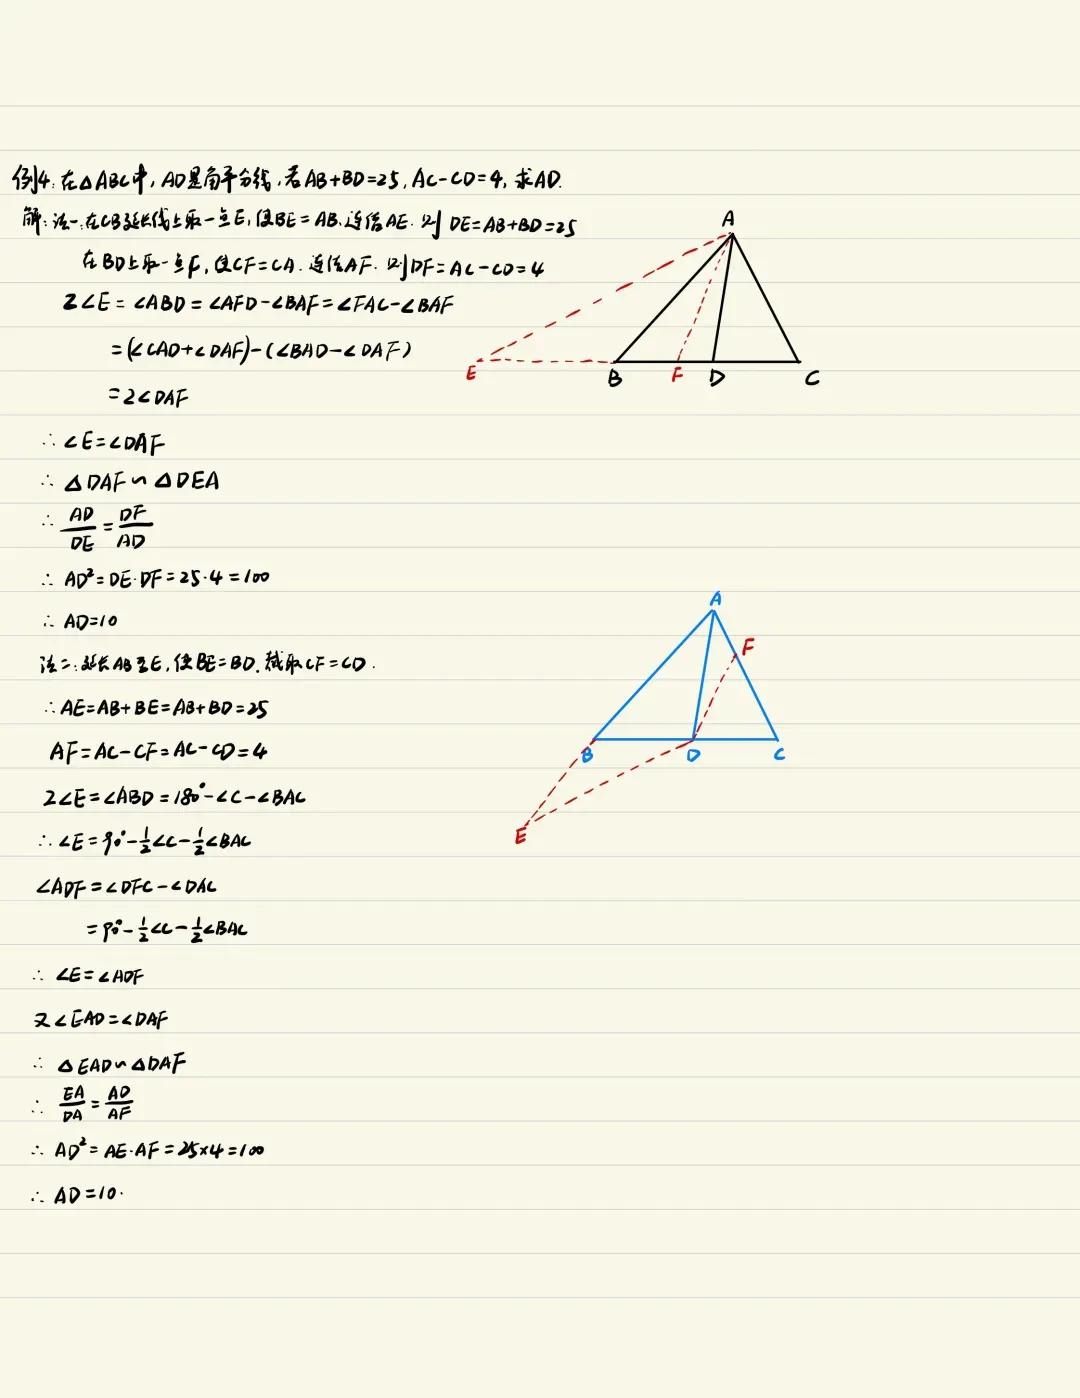 例4:在△ABC中,AD是角平分线,若AB+BD=25,AC-CD=4,求AD.
解:法一:在CB延长线上取一点E,使BE=AB.连结AE.则DE=AB+BD=25
在BD上取一点F,使CF=CA.连结AF.则DF=AC-CD=4
2∠E=∠ABD=∠AFD-∠BAF=∠FAC-∠BAF
=(∠CAD+∠DAF)-(∠BAD-∠DAF)
=2∠DAF
∴∠E=∠DAF
∴△DAF∽△DEA
∴AD/DE=DF/AD
∴AD²=DE·DF=25·4=100
∴AD=10
A
E B F D C
法二:延长AB至E,使BE=BD.截取CF=CD.
∴AE=AB+BE=AB+BD=25
AF=AC-CF=AC-CD=4
2∠E=∠ABD=180°-∠C-∠BAC
∴∠E=90°-1/2∠C-1/2∠BAC
∠ADF=∠DFC-∠DAC
=90°-1/2∠C-1/2∠BAC
∴∠E=∠ADF
又∠EAD=∠DAF
∴△EAD∽△DAF
∴EA/DA=AD/AF
∴AD²=AE·AF=25×4=100
∴AD=10.
A
F
B D C
E